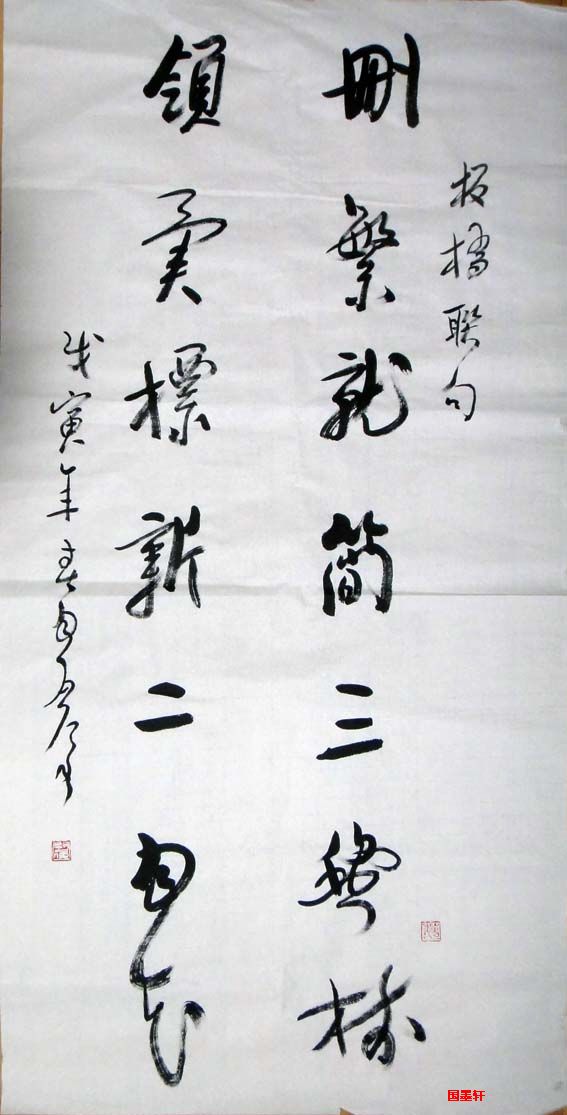 板橋聯句
刪繁就簡三秋樹
領異標新二月花
戊寅年春月
国墨轩